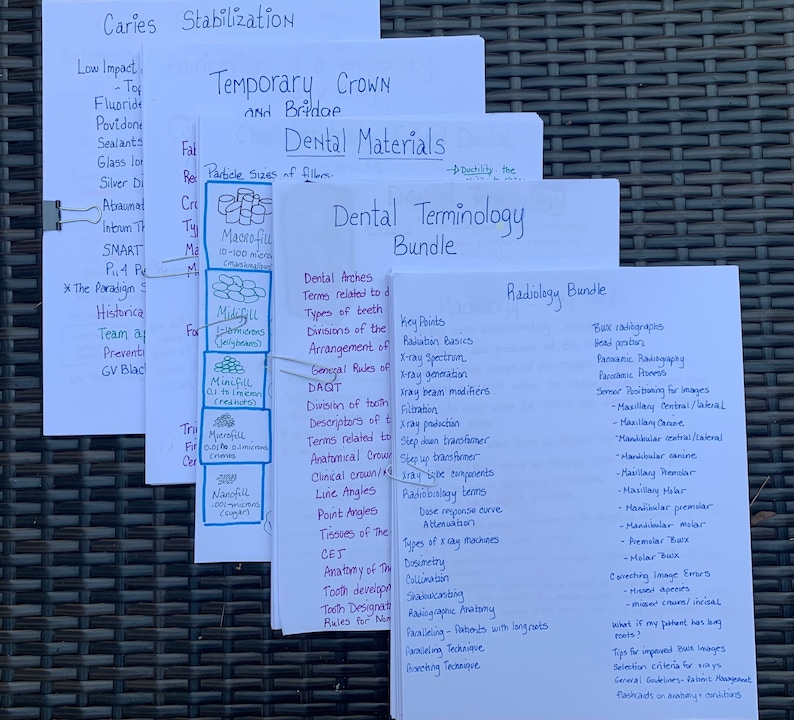 Caries Stabilization
Low Impact
- Top
Fluoride
Povidone
Sealants
Glass Ion
Silver Di
Atraumat
Interim Th
SMART
P11-4 P
* The Paradigm S
Historica
Team ap
Preventi
GV Blac
Temporary Crown
and Bridge
Fab
Re
Cro
Typ
Ma
Fo
Tri
Fi
Cem
Dental Materials
Particle Sizes of fillers:
Ductility - the
Macrofill
10-100 microns
(marshmallows
Midifill
1-10 microns
(jellybeans)
Minifill
0.1 to 1 micron
(redhots)
Microfill
0.01 to 0.1 microns
(nerds
Nanofill
.001-microns
(sugar)
Dental Terminology
Bundle
Dental Arches
Terms related to d
Types of teeth
Divisions of the
Arrangement of
General Rules of
DAQT
Division of tooth
Descriptors of t
Terms related to
Anatomical Crown
Clinical crown/
Line Angles
Point Angles
Tissues of the
CEJ
Anatomy of Th
Tooth developm
Tooth Designat
Rules for Nom
Radiology Bundle
Key Points
Radiation Basics
X-ray Spectrum
X-ray generation
Xray beam modifiers
Filtration
Xray production
Step down transformer
Step up transformer
Xray tube components
Radiobiology terms
Dose response curve
Attenuation
Types of X ray machines
Dosimetry
Collimation
Shadowcasting
Radiographic Anatomy
Paralleling - Patients with long roots
Paralleling Technique
Bisecting Technique
BWX radiographs
Head position
Panoramic Radiography
Panoramic Process
Sensor Positioning for Images
- Maxillary Central/lateral
- Maxillary Canine
- Mandibular central/lateral
- Mandibular canine
- Maxillary Premolar
- Maxillary Molar
- Mandibular premolar
- Mandibular molar
- Premolar BWX
- Molar BWX
Correcting Image Errors
- Missed apecies
- missed crowns/incisal
What if my patient has long
roots?
Tips for improved BWX Images
Selection criteria for xrays
General Guidelines - Patient Management
flashcards on anatomy + conditions